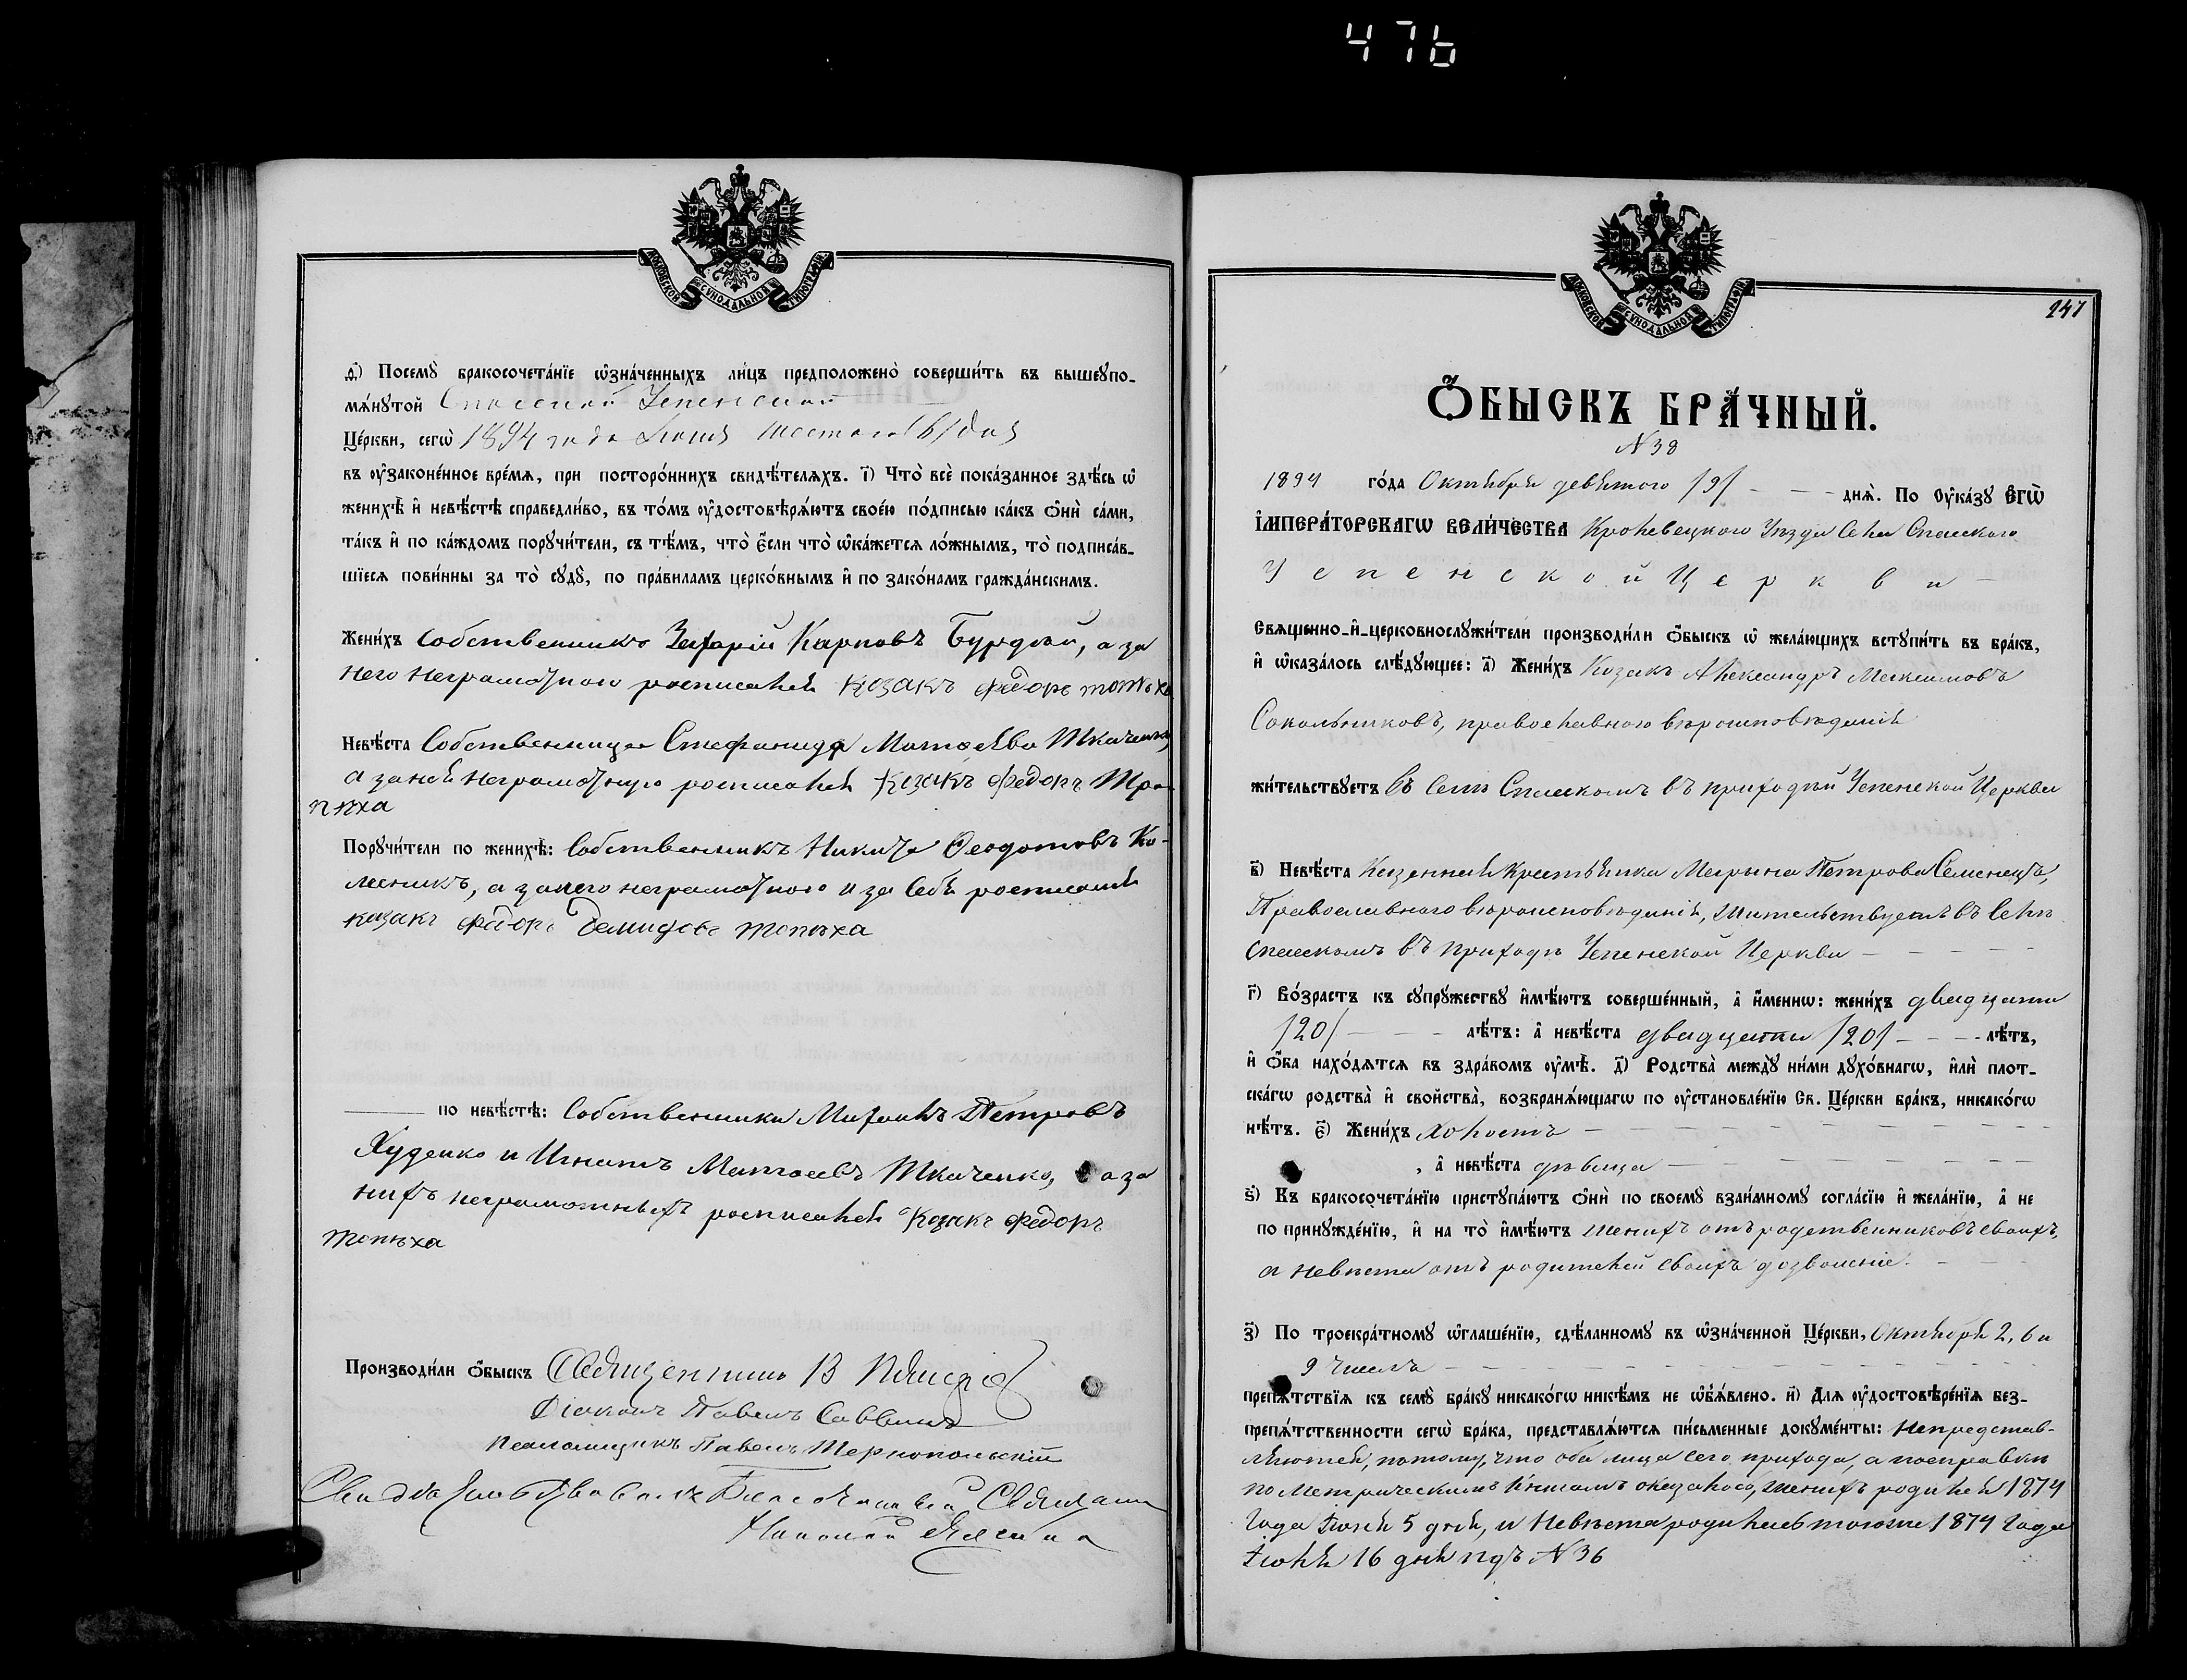 476
МОСКОВСКОЙ СѴНОДАЛЬНОЙ ТИПОГРАФІИ
д҃) Посемꙋ̀ бракосочета́нїе ѡ҆зна́ченныхъ ли́цъ предположено̀ соверши́ть въ вышеꙋпо-
мѧ́нꙋтой Спасской Успенской
Це́ркви, сегѡ̀ 1894 года шестаго /6/ дня
въ оу҆законе́нное вре́мѧ, при посторо́ннихъ свидѣ́телѧхъ. і҃) Что̀ всѐ пока́занное здѣ́сь ѡ҆
женихѣ̀ и҆ невѣ́стѣ справедли́во, въ то́мъ оу҆достовѣрѧ́ютъ свое́ю по́дписью ка́къ ѻ҆нѝ са́ми,
та́къ и҆ по ка́ждомъ порꙋчи́тели, съ тѣ́мъ, что̀ є҆́сли что̀ ѡ҆ка́жетсѧ ло́жнымъ, то̀ подписа́в-
шїесѧ пови́нны за то̀ сꙋдꙋ̀, по пра́виламъ церко́внымъ и҆ по зако́намъ гражда́нскимъ.
Жени́хъ Собственникъ Захарій Карповъ Бурдый, а за
него неграмотного росписался Козакъ Федоръ Топѣха
Невѣ́ста Собственница Стефанида Матѳеева Ткаченк
а за ней неграмотную росписался Козакъ Федоръ То
пѣха
Порꙋчи́тели по женихѣ̀: Собственникъ Никита Ѳеодотовъ Ко-
лесникъ, а за него неграмотного и за себя росписался
козакъ Федоръ Демидовъ Топѣха
по невѣ́стѣ: Собственники Михаилъ Петровъ
Худенко и Игнатъ Матѳеевъ Ткаченко, а за
нихъ неграмотныхъ росписался Козакъ Федоръ
Топѣха
Производи́ли ѻ҆́быскъ Священникъ В
Діаконъ Павелъ Саввинъ
Псаломщикъ Павелъ Тернопольскій
Свидѣтельствовалъ Священникъ
Николай
МОСКОВСКОЙ СѴНОДАЛЬНОЙ ТИПОГРАФІИ
247
Ѻ҆́БЫСКЪ БРА́ЧНЫЙ.
№ 38
1894 го́да Октября девятого /9/ днѧ̀. По Оу҆ка́зꙋ Є҆ГѠ̀
І҆МПЕРА́ТОРСКАГѠ ВЕЛИ́ЧЕСТВА Кролевецкого Уѣзда Села Спасского
Успенской Церкви
Сщ҃енно-и҆-церковнослꙋжи́тели производи́ли ѻ҆́быскъ ѡ҆ жела́ющихъ встꙋпи́ть въ бра́къ,
и҆ ѡ҆каза́лось слѣ́дꙋющее: а҃) Жени́хъ Козакъ Александръ Максимовъ
Сокольниковъ, православного вѣроисповѣданія
жи́тельствꙋетъ въ Селѣ Спасскомъ въ приходѣ Успенской Церкви
в҃) Невѣ́ста Казенная Крестьянка Марина Петрова Семенецъ,
Православного вѣроисповѣданія, жительствуетъ въ Селѣ
Спасскомъ въ приходѣ Успенской Церкви
г҃) Во́зрастъ къ сꙋпрꙋ́жествꙋ и҆мѣ́ютъ соверше́нный, а҆ и҆́меннѡ: жени́хъ двадцати
/20/ лѣ́тъ: а҆ невѣ́ста двадцати /20/ лѣ́тъ,
и҆ ѻ҆́ба нахо́дѧтсѧ въ здра́вомъ оу҆мѣ̀. д҃) Родства̀ междꙋ̀ ни́ми дꙋхо́внагѡ, и҆лѝ плот-
ска́гѡ родства̀ и҆ свойства̀, возбранѧ́ющагѡ по оу҆становле́нїю Св. Це́ркви бра́къ, никако́гѡ
нѣ́тъ. є҃) Жени́хъ Холостъ
, а҆ невѣ́ста дѣвица
ѕ҃) Къ бракосочета́нїю пристꙋпа́ютъ ѻ҆нѝ по своемꙋ̀ взаи́мномꙋ согла́сїю и҆ жела́нїю, а҆ не
по принꙋжде́нїю, и҆ на то̀ и҆мѣ́ютъ женихъ отъ родственниковъ своихъ,
а невѣста отъ родителей своихъ дозволеніе.
з҃) По троекра́тномꙋ ѡ҆глаше́нїю, сдѣ́ланномꙋ въ ѡ҆зна́ченной Це́ркви, Октября 2, 6 и
9 чиселъ
препѧ́тствїѧ къ семꙋ̀ бра́кꙋ никако́гѡ никѣ́мъ не ѡ҆б̾ѧ́влено. и҃) Длѧ оу҆достовѣре́нїѧ без-
препѧ́тственности сегѡ̀ бра́ка, представлѧ́ютсѧ пи́сьменные докꙋме́нты: Непредстав-
ляются, потому, что оба лица сего прихода, а посправки
по Метрическимъ Книгамъ оказалось, женихъ родился 1874
Года Іюня 5 дня, и Невѣста родилась тогоже 1874 Года
Іюля 16 дня подъ № 36